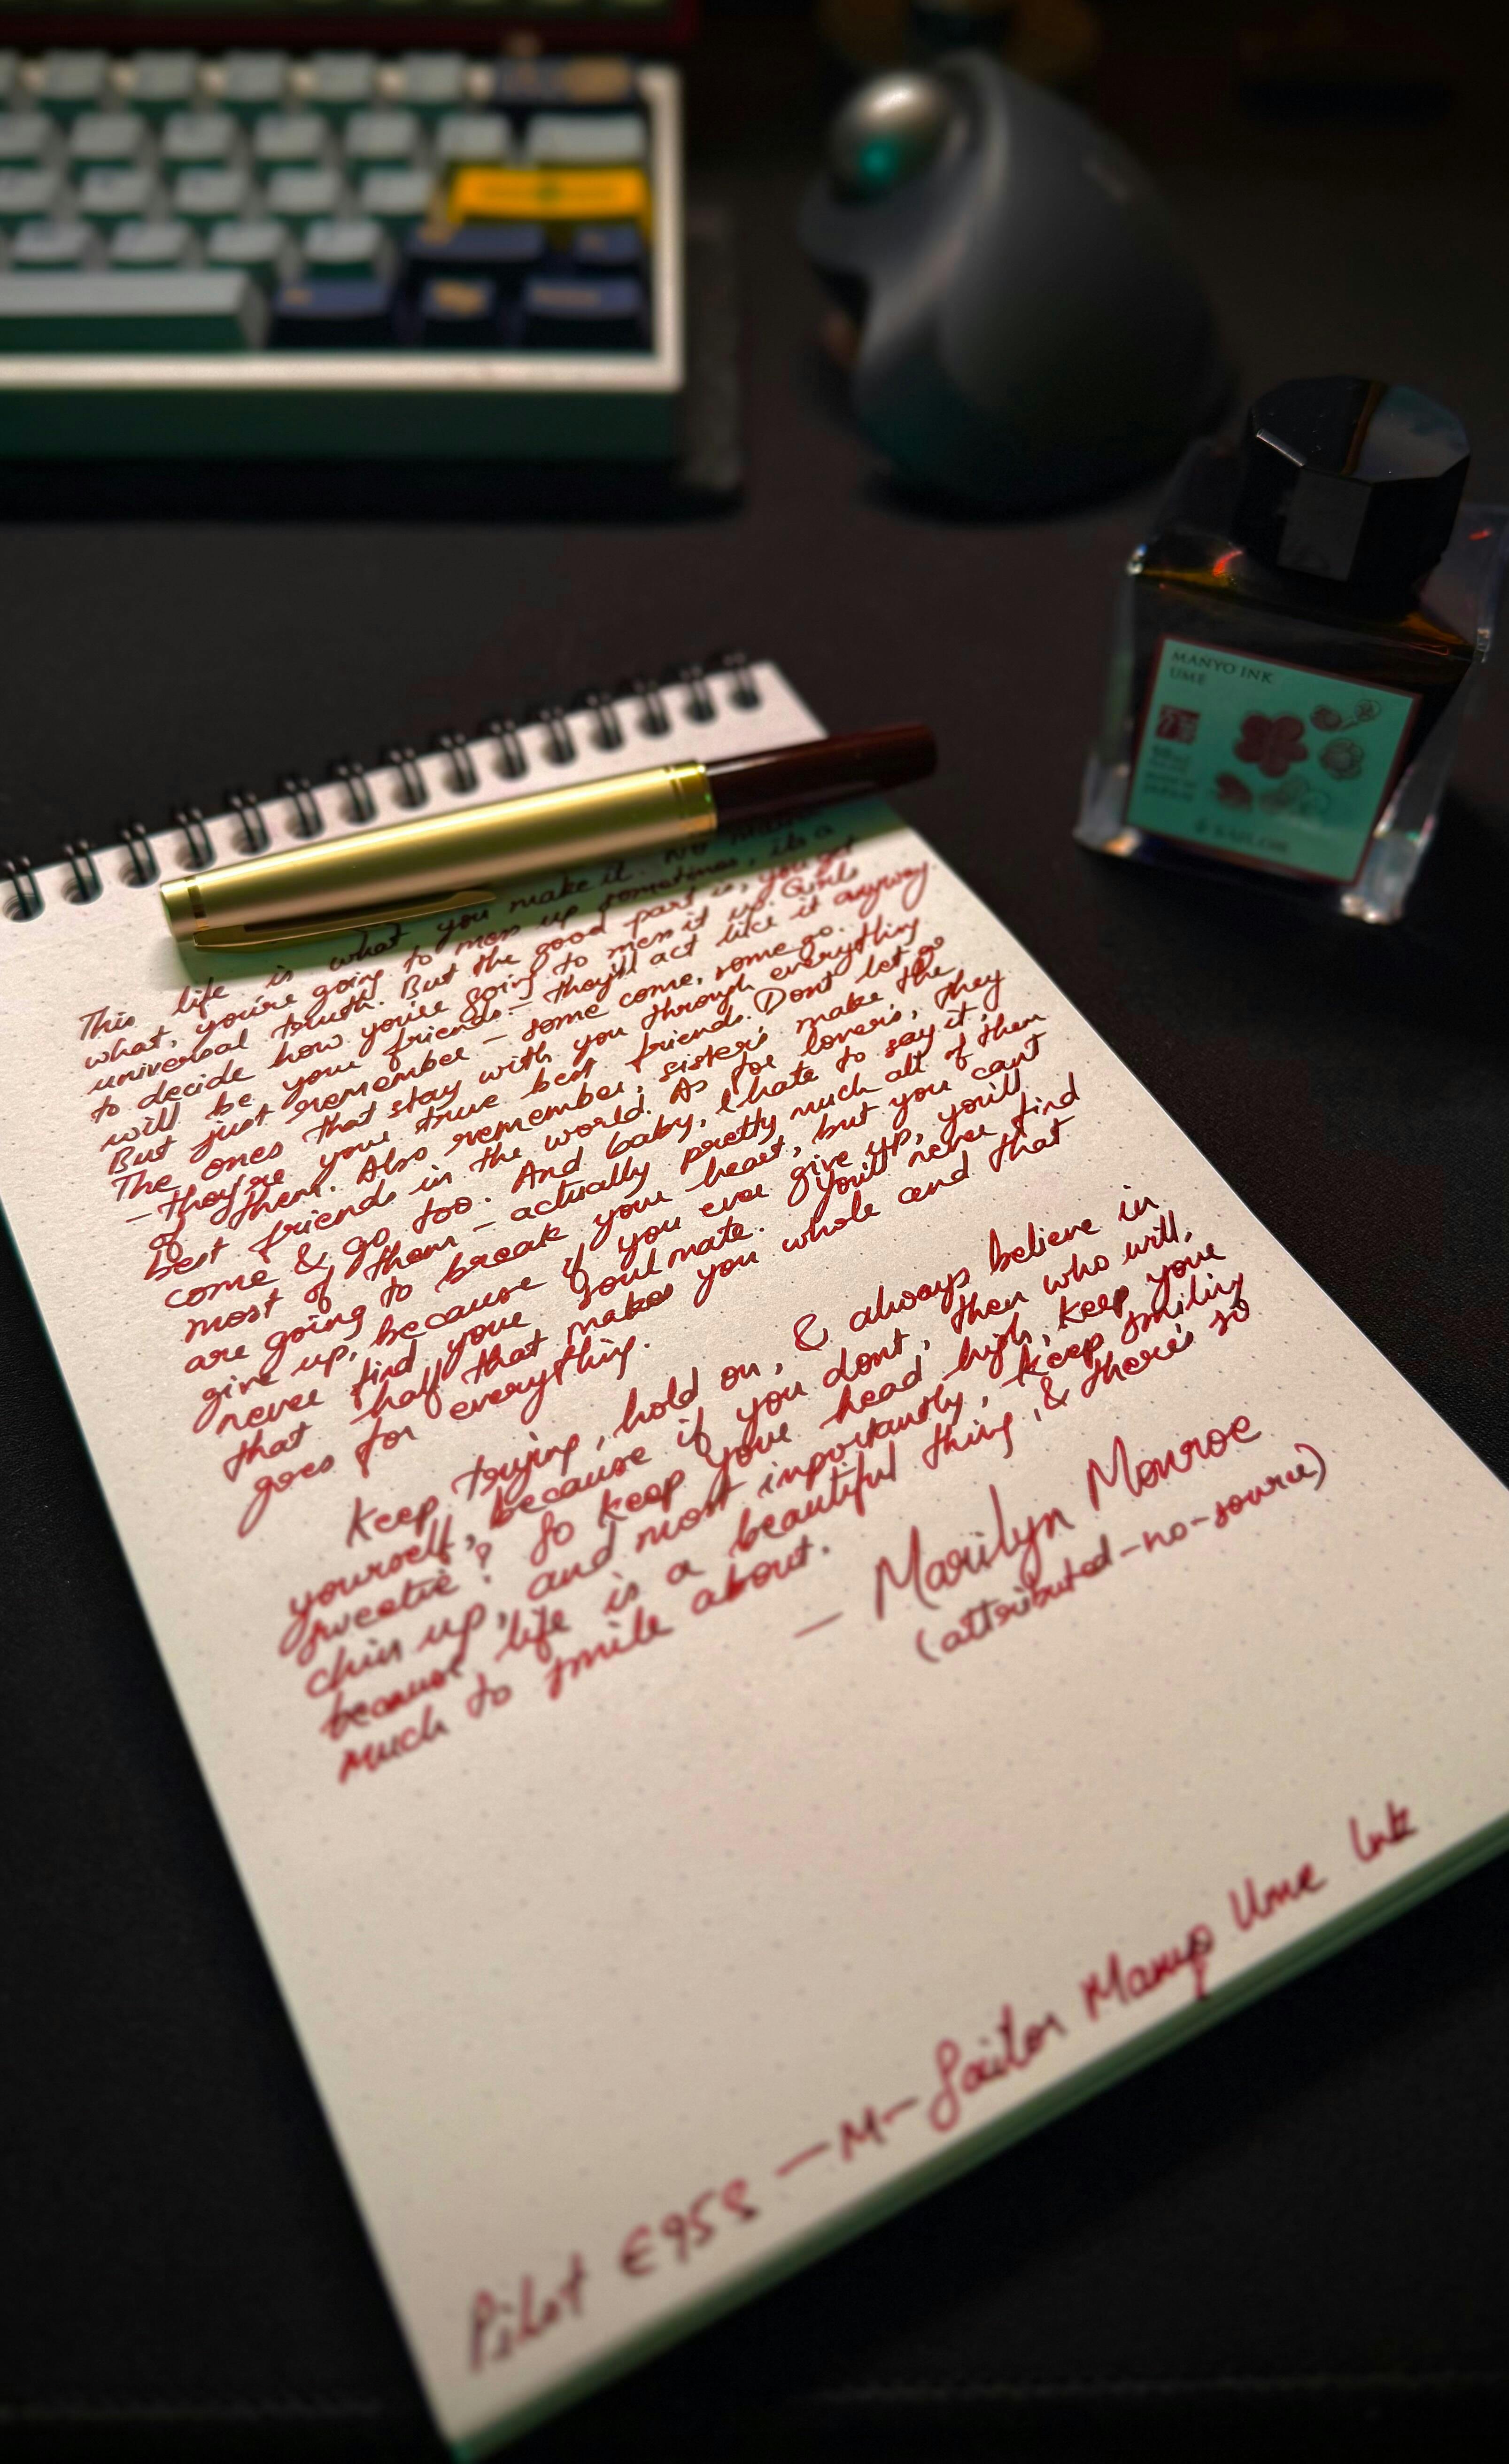 MANYO INK
UME
SAILOR
This life is what you make it. No matter
what, you're going to mess up sometimes, it's a
universal truth. But the good part is, you get
to decide how you're going to mess it up. Girls
will be your friends - they'll act like it anyway.
But just remember - some come, some go.
The ones that stay with you through everything
- they're your true best friends. Don't let go
of them. Also remember, sister's make the
best friends in the world. As for lovers, they
come & go too. And baby, I hate to say it,
most of them - actually pretty much all of them
are going to break your heart, but you cant
give up, because if you ever give up, you'll
never find your soulmate. You'll never find
that half that makes you whole and that
goes for everything.
Keep trying, hold on, & always believe in
yourself, because if you dont, then who will,
sweetie? So keep your head high, keep your
chin up, and most importantly, keep smiling
because life is a beautiful thing, & there's so
much to smile about.
— Marilyn Monroe
(attributed-no-source)
Pilot E95S — M — Sailor Manyo Ume Ink